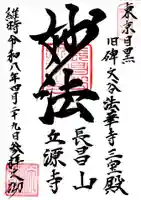 東京目黒
旧碑文谷法華寺三宝殿
妙法
長昌山
立源寺
維時令和八年四月二十九日参拝之砌